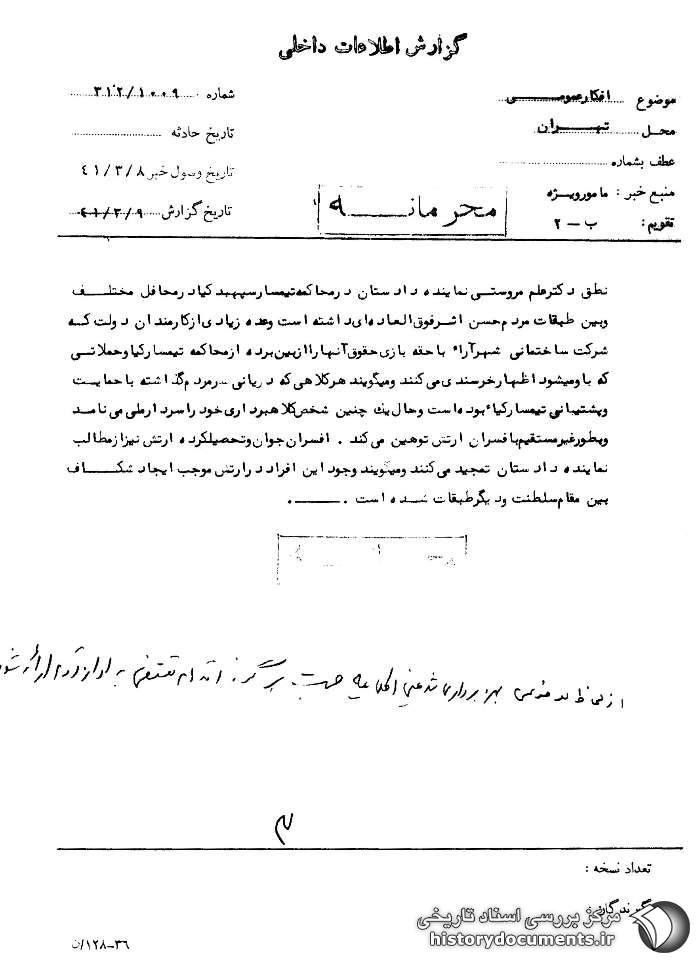 گزارش اطلاعات داخلی
موضوع افکار عمومـــی
محل تهـــران
عطف بشماره
منبع خبر : مامور ویژه
تقویم: ب – ۲
شماره ۳۱۲/۱۰۰۹
تاریخ حادثه
تاریخ وصول خبر ۴۱/۳/۸
تاریخ گزارش ۴۱/۳/۹
محرمانـــه
نطق دکتر علم مروستی نماینده دادستان در محاکمه تیمسار سپهبد کیا در محافل مختلـــف
وبین طبقات مردم حسن اثر فوق العاده ای داشته است وعده زیادی از کارمندان دولت کـــه
شرکت ساختمانی شهرآراء با حقه بازی حقوق آنها را ازبین برده از محاکمه تیمسار کیا و حملاتـی
که باو میشود اظهار خرسندی می کنند ومیگویند هر کلاهی که دریانی سر مردم گذاشته با حمایـت
وپشتیبانی تیمسار کیاء بوده است وحال یک چنین شخص کلاهبرداری خود را سردار ملی می نامـد
وبطور غیر مستقیم بافسران ارتش توهین می کند . افسران جوان وتحصیلکرده ارتش نیز از مطالب
نماینده دادستان تمجید می کنند ومیگویند وجود این افراد در ارتش موجب ایجاد شکـــاف
بین مقام سلطنت ودیگر طبقات شده است . ــــــ .
از لحاظ بهره برداری
تعداد نسخه :
گیرندگان :
۱۲۸-۳۶/ن
مرکز بررسی اسناد تاریخی
historydocuments.ir